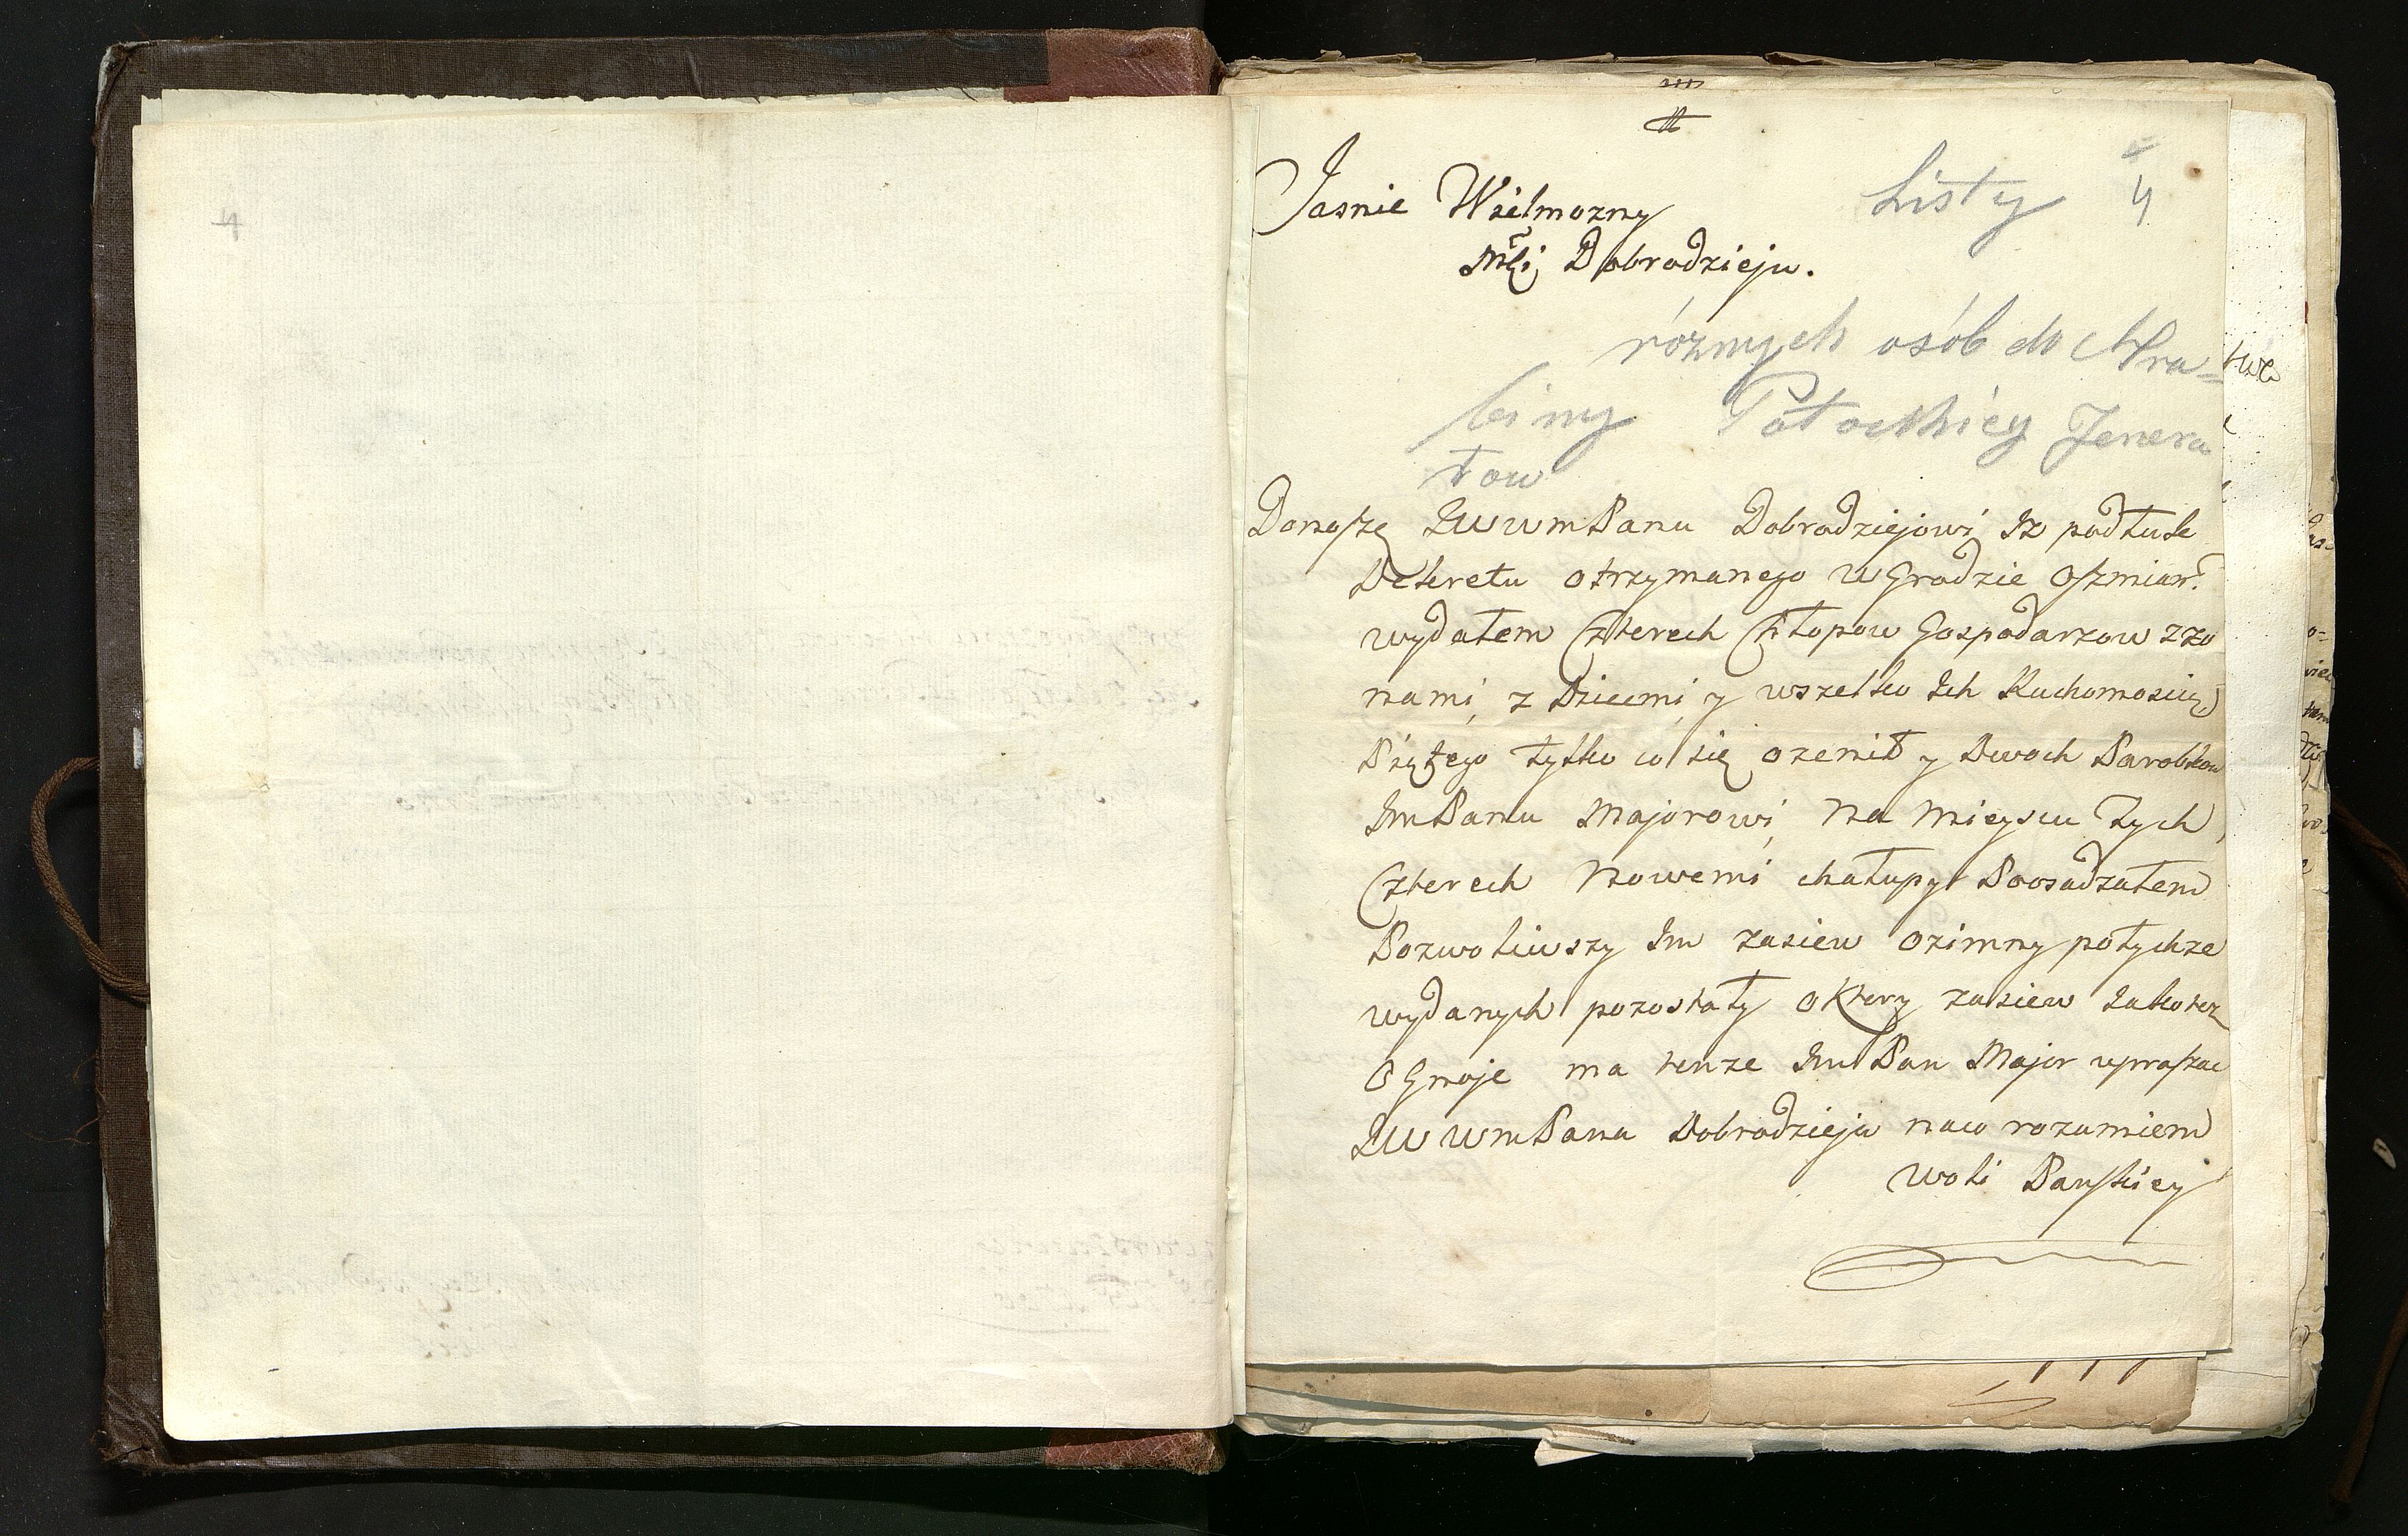 4
Jasnie Wielmozny
Mći Dobrodzieju.
Listy 4
roznych osób do Hra=
biny Potockiey Jenera
łow
Donoszę JWWmPanu Dobrodziejowi Iz podług
Dekretu otrzymanego w Grodzie Oszmian:
wydałem Czterech Chłopow Gospodarzow z zo
nami, z Dziecmi, y wszelko Ich Ruchomoscią,
Piątego tylko co się ozenił y Dwoch Parobkow
ImPanu Majorowi, Na Mieyscu Tych,
Czterech Nowemi chałupy Poosadzałem
Pozwoliwszy Im zasiew ozimny po tychze
wydanych pozostały o Ktory zasiew Jako tez
O Gnoje ma tenze Im Pan Major upraszac
JWWmPana Dobrodzieja na co rozumiem
woli Panskiey